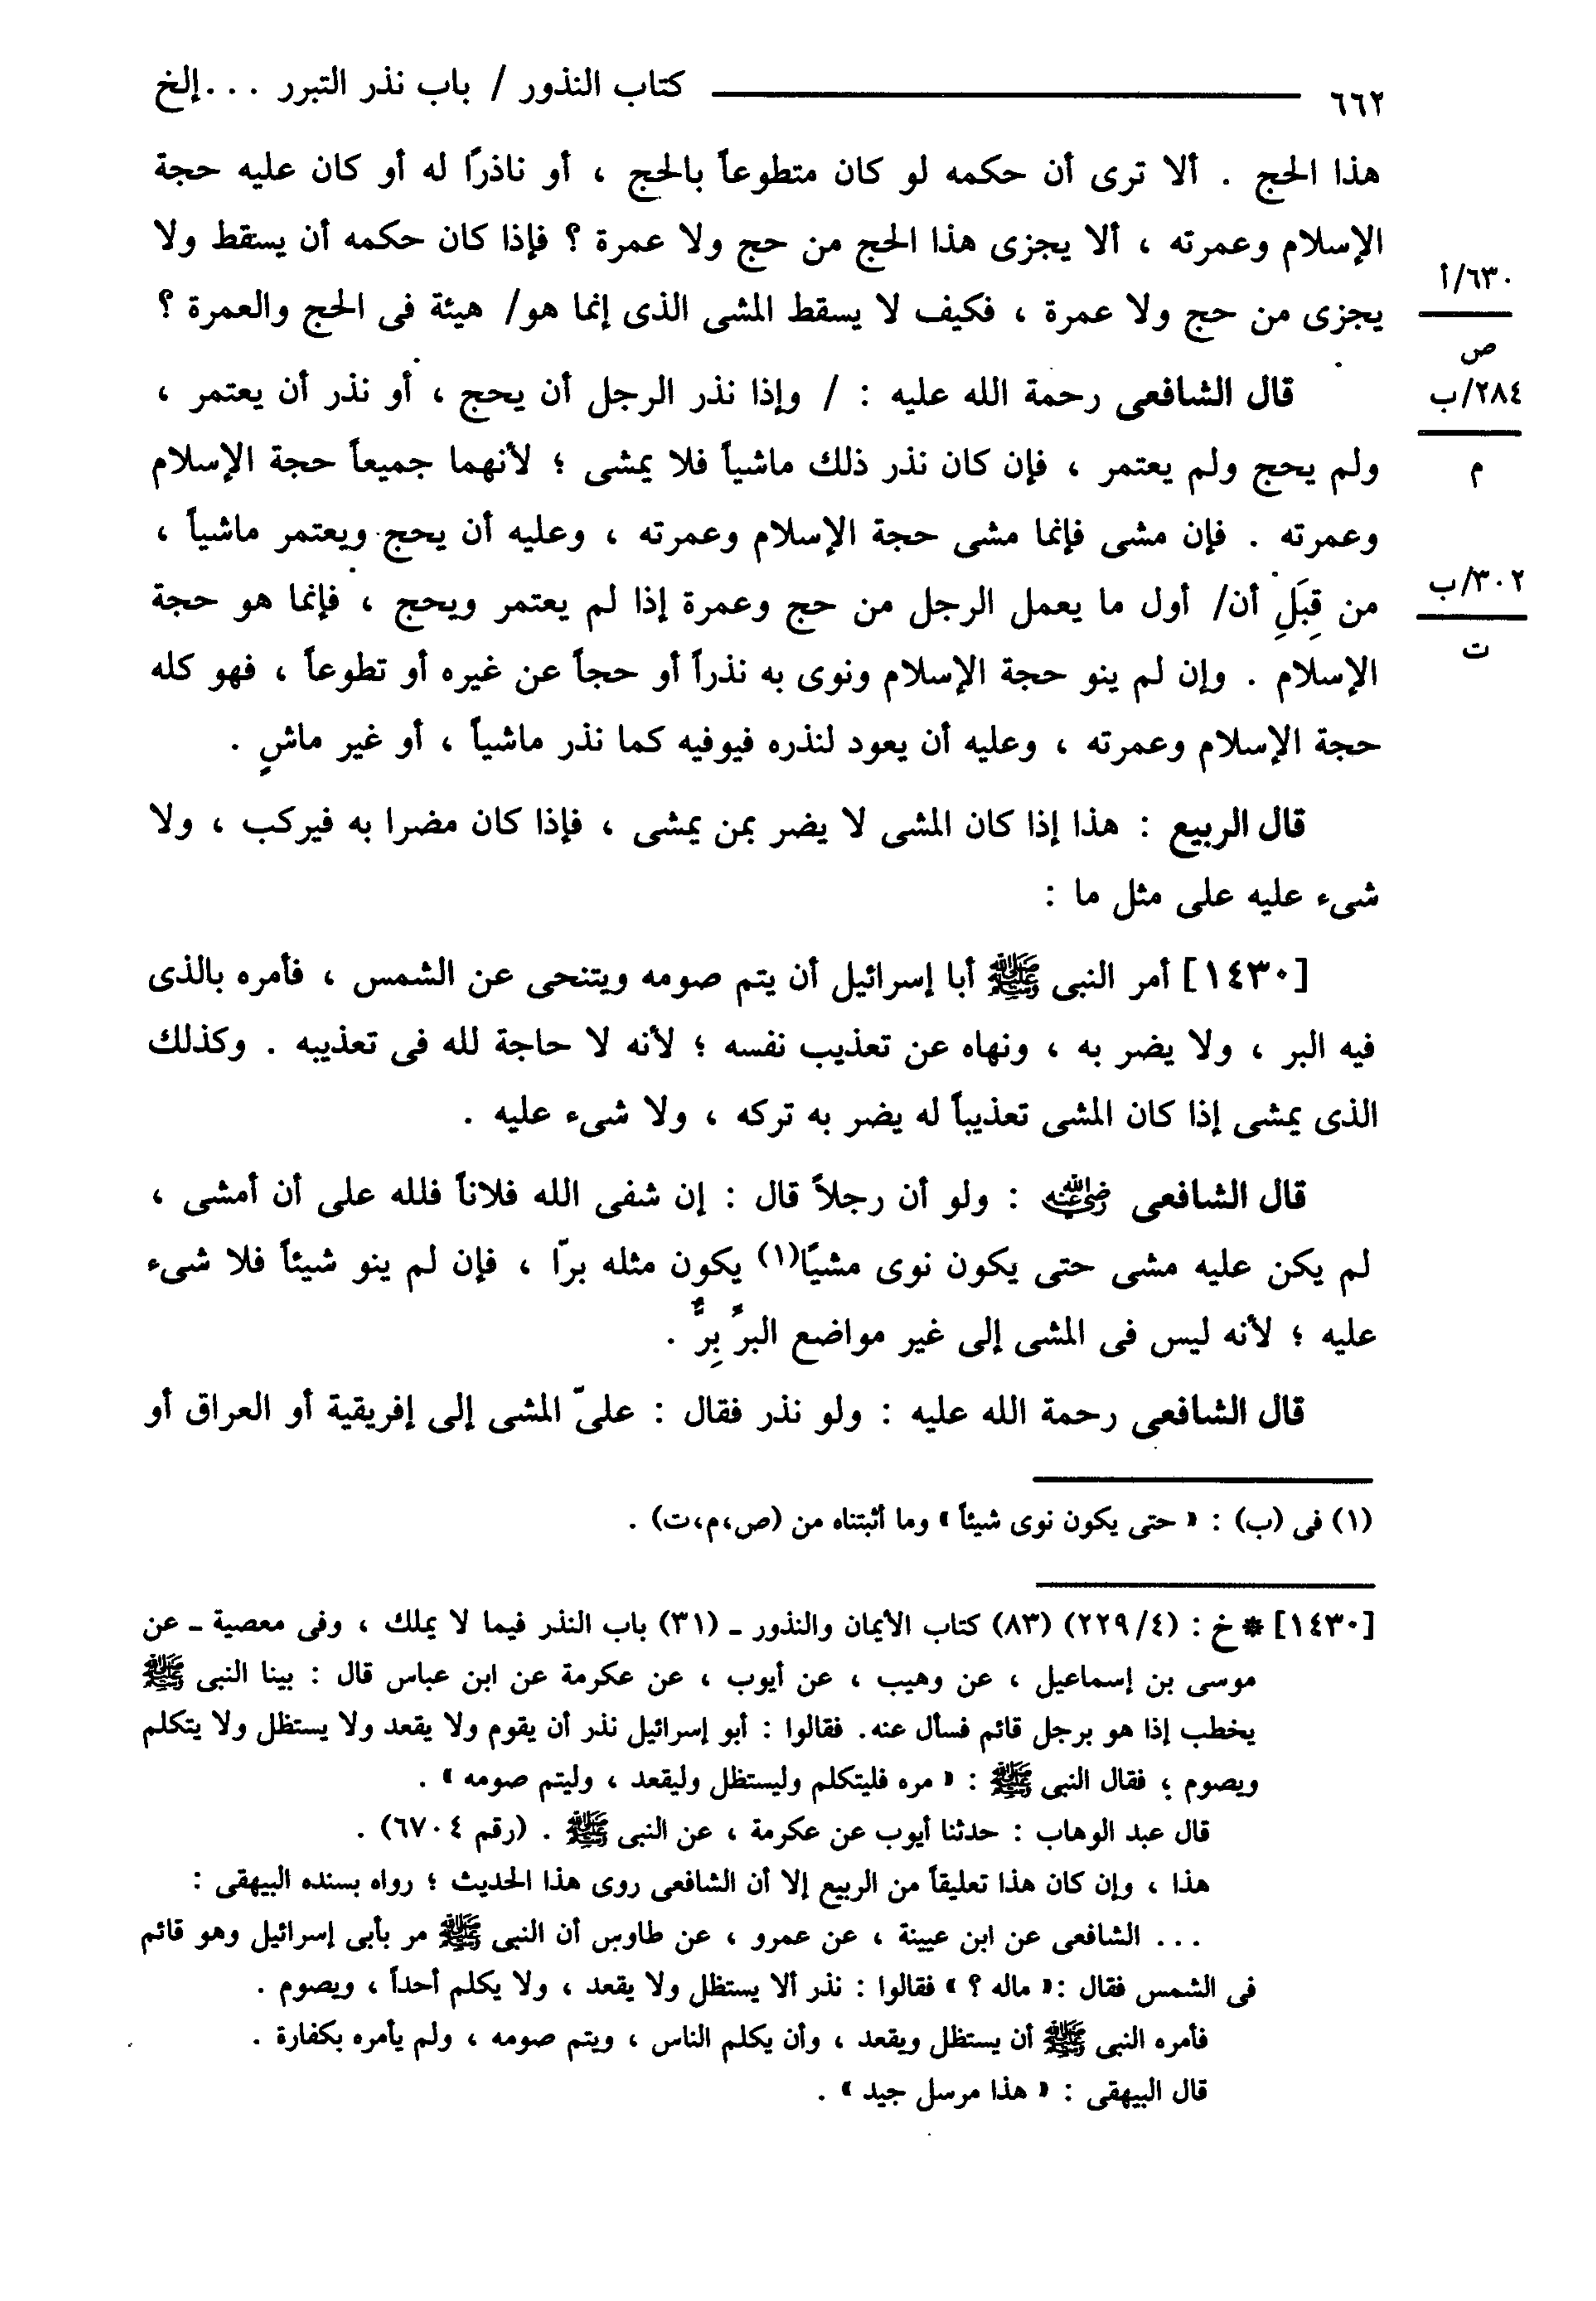 ٦٦٢ كتاب النذور / باب نذر التبرر . . . إلخ
هذا الحج . ألا ترى أن حكمه لو كان متطوعاً بالحج ، أو ناذرًا له أو كان عليه حجة
الإسلام وعمرته ، ألا يجزى هذا الحج من حج ولا عمرة ؟ فإذا كان حكمه أن يسقط ولا
٦٣٠/أ
يجزى من حج ولا عمرة ، فكيف لا يسقط المشى الذى إنما هو/ هيئة فى الحج والعمرة ؟
ص
قال الشافعى رحمة الله عليه : / وإذا نذر الرجل أن يحج ، أو نذر أن يعتمر ،
٢٨٤/ب
ولم يحج ولم يعتمر ، فإن كان نذر ذلك ماشياً فلا يمشى ؛ لأنهما جميعاً حجة الإسلام
م
وعمرته . فإن مشى فإنما مشى حجة الإسلام وعمرته ، وعليه أن يحج ويعتمر ماشياً ،
٣٠٢/ب
من قِبَلِ أن/ أول ما يعمل الرجل من حج وعمرة إذا لم يعتمر ويحج ، فإنما هو حجة
ت
الإسلام . وإن لم ينو حجة الإسلام ونوى به نذراً أو حجاً عن غيره أو تطوعاً ، فهو كله
حجة الإسلام وعمرته ، وعليه أن يعود لنذره فيوفيه كما نذر ماشياً ، أو غير ماشٍ .
قال الربيع : هذا إذا كان المشى لا يضر بمن يمشى ، فإذا كان مضرا به فيركب ، ولا
شىء عليه على مثل ما :
[١٤٣٠] أمر النبى ﷺ أبا إسرائيل أن يتم صومه ويتنحى عن الشمس ، فأمره بالذى
فيه البر ، ولا يضر به ، ونهاه عن تعذيب نفسه ؛ لأنه لا حاجة لله فى تعذيبه . وكذلك
الذى يمشى إذا كان المشى تعذيباً له يضر به تركه ، ولا شىء عليه .
قال الشافعى رضي الله عنه : ولو أن رجلاً قال : إن شفى الله فلاناً فلله على أن أمشى ،
لم يكن عليه مشى حتى يكون نوى مشيًا(١) يكون مثله برّا ، فإن لم ينو شيئاً فلا شىء
عليه ؛ لأنه ليس فى المشى إلى غير مواضع البرِّ بِرٌّ .
قال الشافعى رحمة الله عليه : ولو نذر فقال : علىّ المشى إلى إفريقية أو العراق أو
(١) فى (ب) : « حتى يكون نوى شيئاً » وما أثبتناه من (ص،م،ت) .
[١٤٣٠] * خ : (٤/ ٢٢٩) (٨٣) كتاب الأيمان والنذور ـ (٣١) باب النذر فيما لا يملك ، وفى معصية ـ عن
موسى بن إسماعيل ، عن وهيب ، عن أيوب ، عن عكرمة عن ابن عباس قال : بينا النبى ﷺ
يخطب إذا هو برجل قائم فسأل عنه. فقالوا : أبو إسرائيل نذر أن يقوم ولا يقعد ولا يستظل ولا يتكلم
ويصوم ؛ فقال النبى ﷺ : « مره فليتكلم وليستظل وليقعد ، وليتم صومه » .
قال عبد الوهاب : حدثنا أيوب عن عكرمة ، عن النبى ﷺ . (رقم ٦٧٠٤) .
هذا ، وإن كان هذا تعليقاً من الربيع إلا أن الشافعى روى هذا الحديث ؛ رواه بسنده البيهقى :
. . . الشافعى عن ابن عيينة ، عن عمرو ، عن طاوس أن النبى ﷺ مر بأبى إسرائيل وهو قائم
فى الشمس فقال :« ماله ؟ » فقالوا : نذر ألا يستظل ولا يقعد ، ولا يكلم أحداً ، ويصوم .
فأمره النبى ﷺ أن يستظل ويقعد ، وأن يكلم الناس ، ويتم صومه ، ولم يأمره بكفارة .
قال البيهقى : « هذا مرسل جيد » .